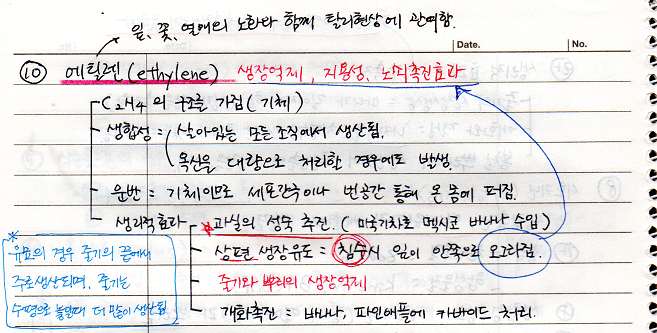 잎, 꽃, 열매의 노화와 함께 탈리현상에 관여함.
Date. No.
⑩ 에틸렌(ethylene) 생장억제, 지통성, 노쇠촉진효과
C2H4의 구조를 가짐(기체)
생합성 = 살아있는 모든 조직에서 생산됨.
옥신을 대량으로 처리한 경우에도 발생.
운반 = 기체이므로 세포간극이나 빈공간 통해 온 몸에 퍼짐.
생리적효과 * 과실의 성숙 촉진. (미국기차로 멕시코 바나나 수입)
상편 생장유도 = 침수시 잎이 안쪽으로 오그라짐.
줄기와 뿌리의 생장억제
개화촉진 = 바나나, 파인애플에 카바이드 처리.
* 유묘의 경우 줄기의 끝에서
주로생산되며, 줄기는
수평으로 눕힐때 더 많이 생산됨